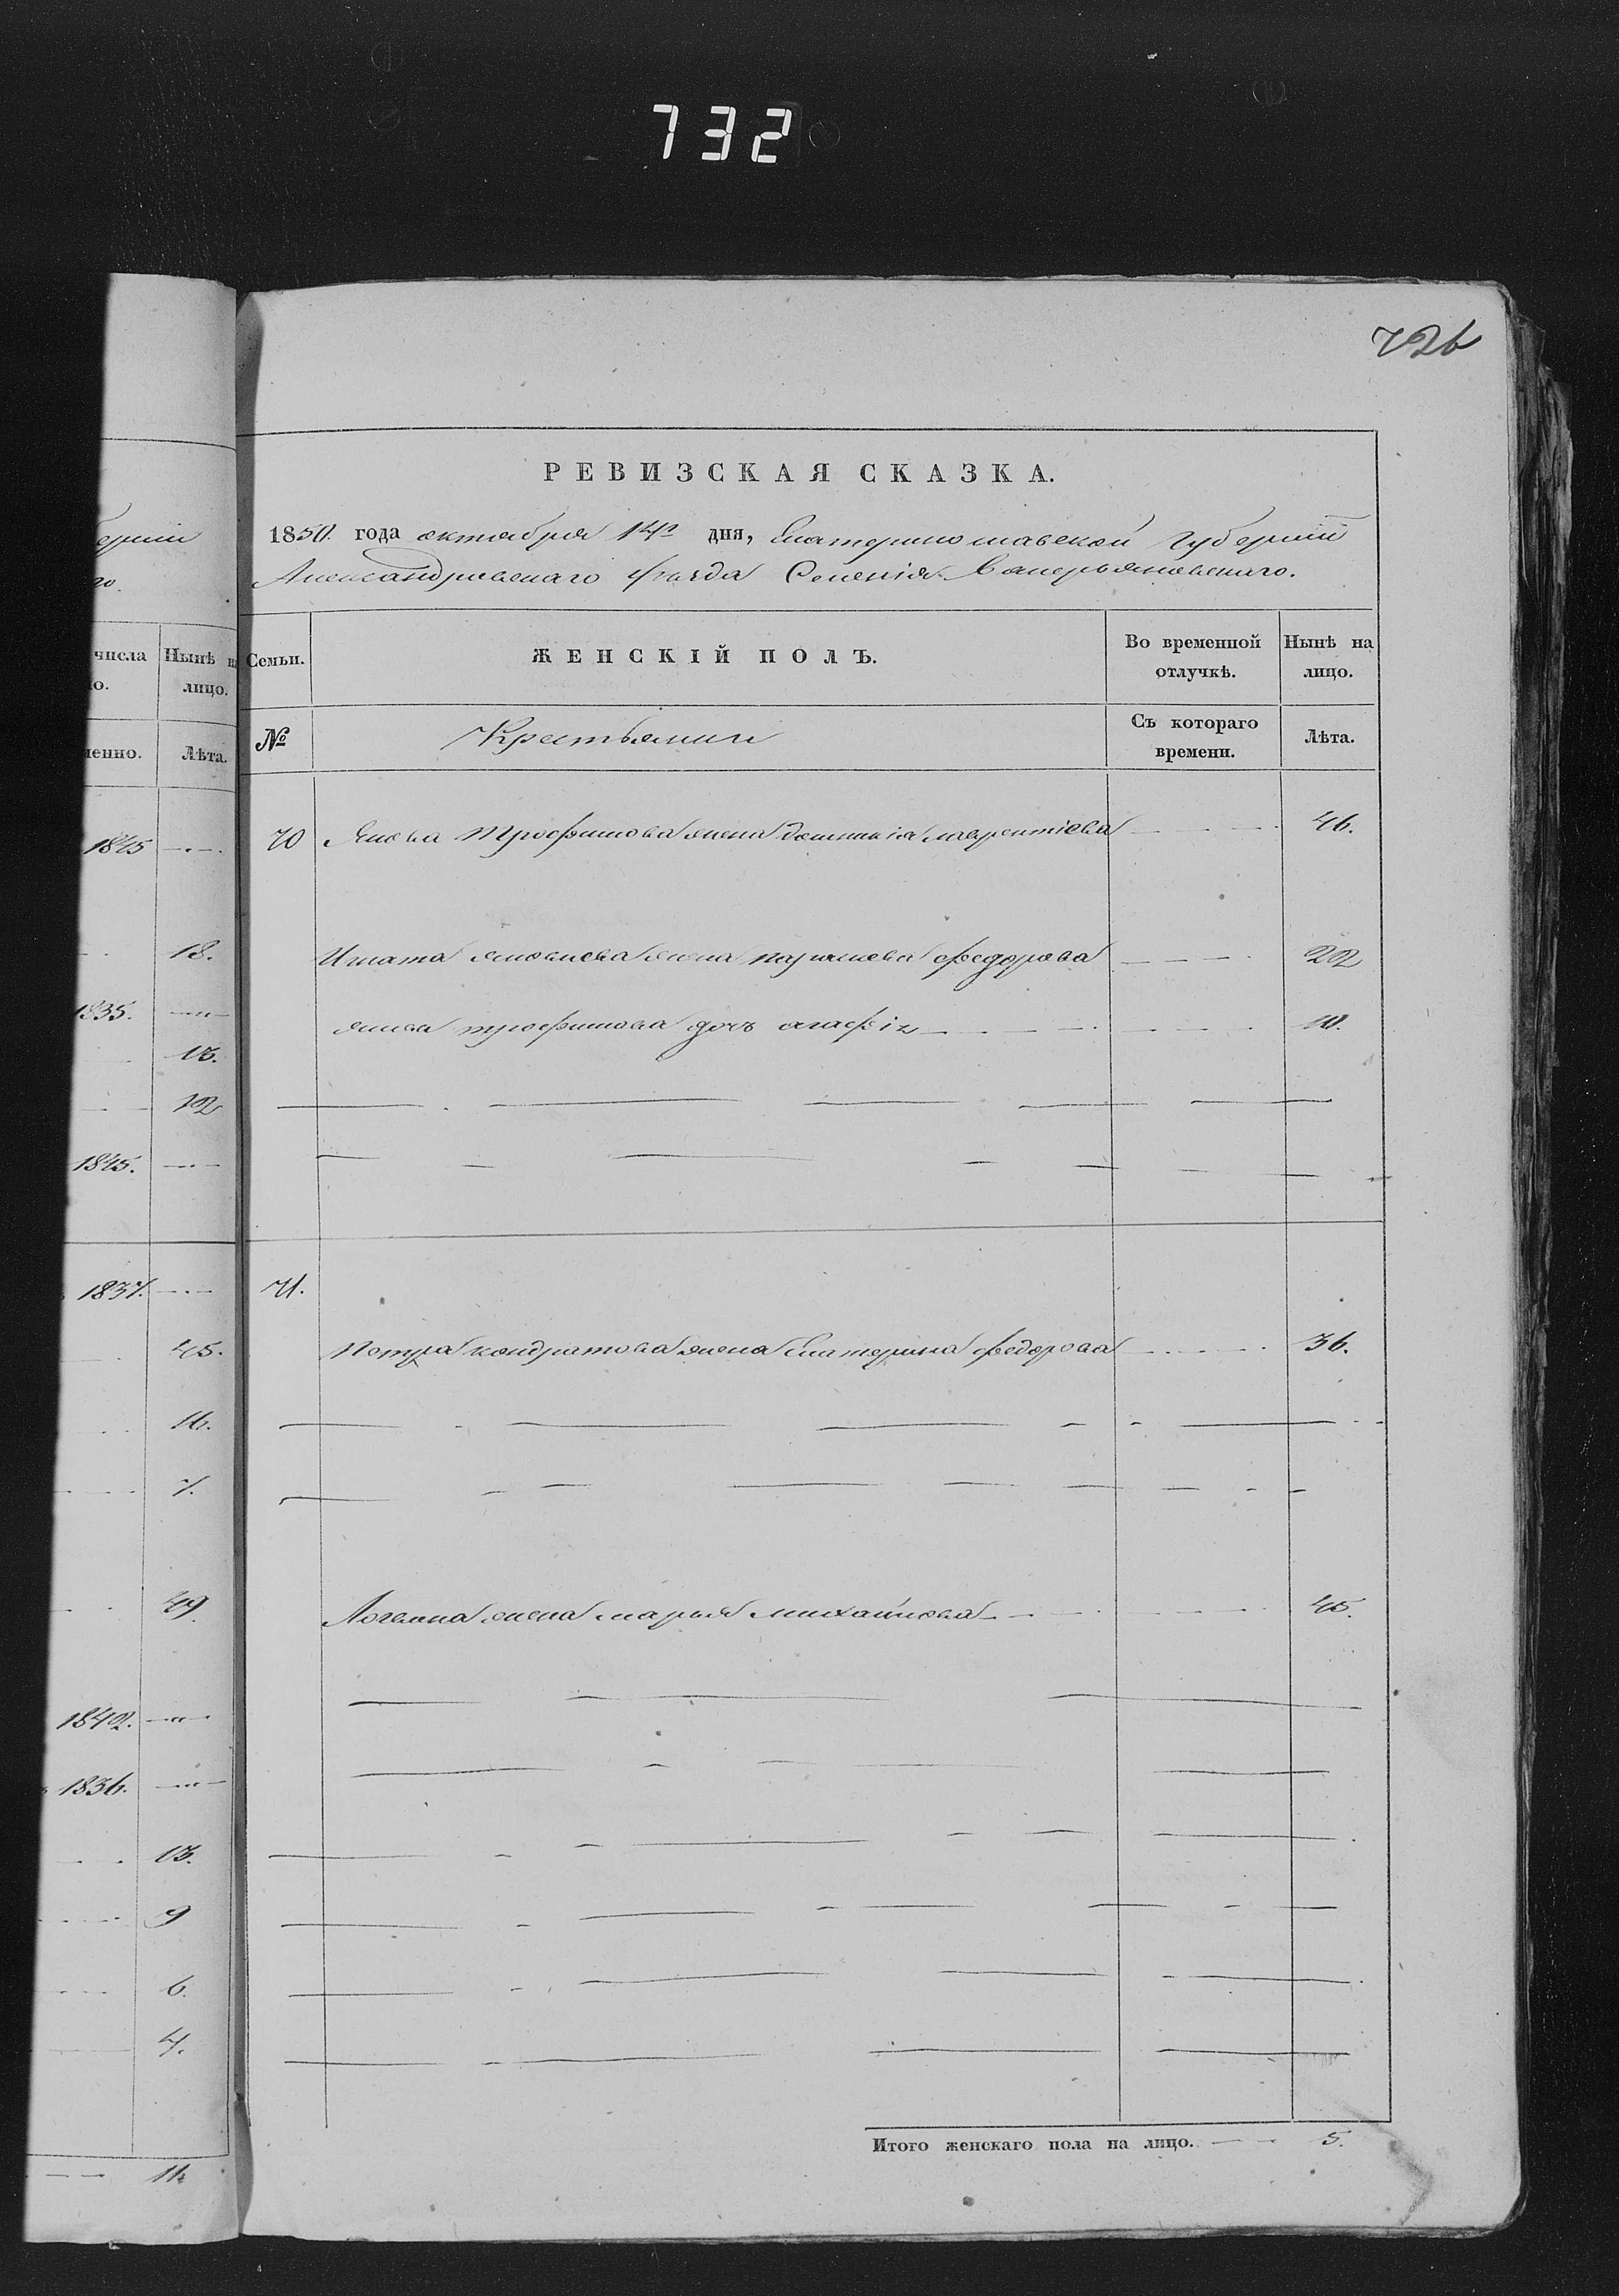 732
726
РЕВИЗСКАЯ СКАЗКА.
1850 года октября 14го дня, Екатеринославской Губернии
Александровскаго уезда Селения
Семьи.
ЖЕНСКІЙ ПОЛЪ.
Во временной отлучкѣ.
Нынѣ на лицо.
№
Крестьянки
Съ котораго времени.
Лѣта.
70 Якова Трофимова жена Домникія Лаврентіева 46.
Игната Яковлева жена Федорова 22
Якова Трофимова дочь агафія 10.
71.
Петра Кондратова жена Екатерина Федорова 36.
Логвина жена Марья Михайлова 45.
Итого женскаго пола на лицо. 5.
числа
Нынѣ на
лицо.
Лѣта.
1845
18.
1835.
13.
12
1845.
1837.
45.
16.
7.
49.
1842.
1836.
13.
9
6.
4.
11.